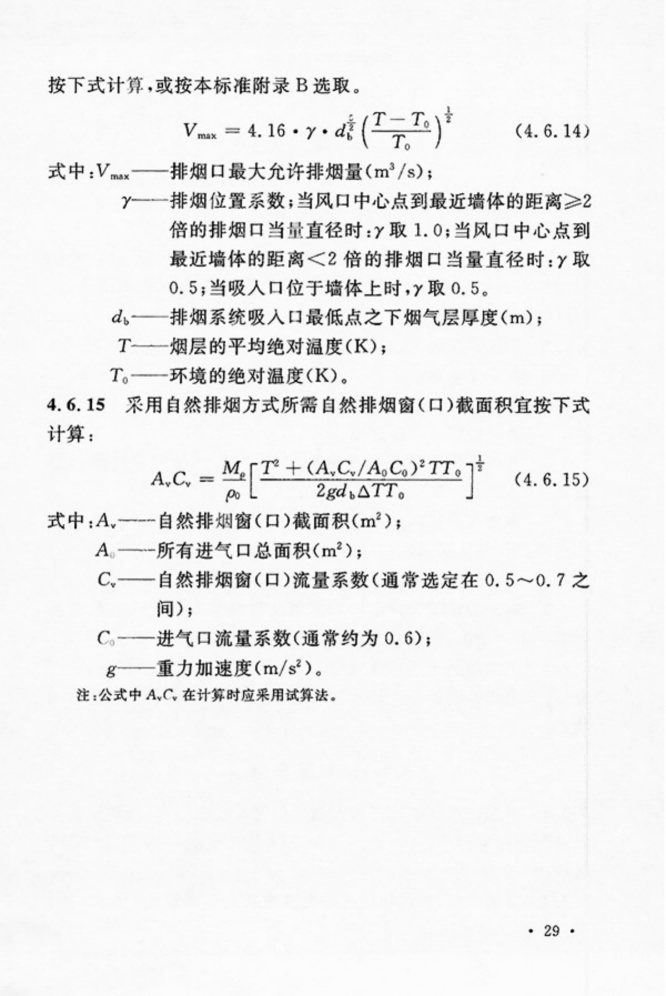 按下式计算,或按本标准附录 B 选取。
V_max = 4.16 · γ · d_b^{5/2} ((T − T₀)/T₀)^{1/2} (4.6.14)
式中:V_max——排烟口最大允许排烟量(m³/s);
γ——排烟位置系数;当风口中心点到最近墙体的距离≥2
倍的排烟口当量直径时:γ取 1.0;当风口中心点到
最近墙体的距离<2 倍的排烟口当量直径时:γ取
0.5;当吸入口位于墙体上时,γ取 0.5。
d_b——排烟系统吸入口最低点之下烟气层厚度(m);
T——烟层的平均绝对温度(K);
T₀——环境的绝对温度(K)。
4.6.15 采用自然排烟方式所需自然排烟窗(口)截面积宜按下式
计算:
A_vC_v = M_ρ/ρ₀ [(T² + (A_vC_v/A₀C₀)²TT₀)/(2gd_bΔTT₀)]^{1/2} (4.6.15)
式中:A_v——自然排烟窗(口)截面积(m²);
A₀——所有进气口总面积(m²);
C_v——自然排烟窗(口)流量系数(通常选定在 0.5~0.7 之
间);
C₀——进气口流量系数(通常约为 0.6);
g——重力加速度(m/s²)。
注:公式中 A_vC_v 在计算时应采用试算法。
· 29 ·